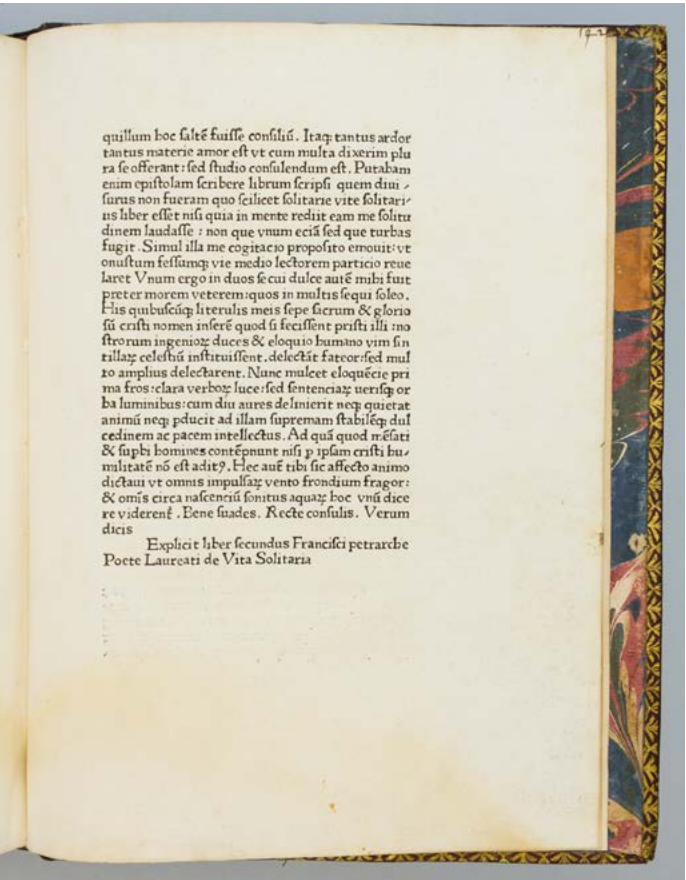 142
quillum hoc saltē fuisse consiliū. Itaq; tantus ardor
tantus materie amor est vt cum multa dixerim plu
ra se offerant: sed studio consulendum est. Putabam
enim epistolam scribere librum scripsi quem diui⸗
surus non fueram quo scilicet solitarie vite solitari⸗
us liber esset nisi quia in mente rediit eam me solitu
dinem laudasse : non que vnum eciā sed que turbas
fugit. Simul illa me cogitacio proposito emouit: vt
onustum fessumq; vie medio lectorem particio reue
laret Vnum ergo in duos secui dulce autē mihi fuit
preter morem veterem: quos in multis sequi soleo.
His quibuscūq; literulis meis sepe sacrum & glorio
sū cristi nomen inserē quod si fecissent pristi illi : no
strorum ingenioꝝ duces & eloquio humano vim sin
tillaꝝ celestiū instituissent. delectāt fateor: sed mul
to amplius delectarent. Nunc mulcet eloquēcie pri
ma fros: clara verboꝝ luce: sed sentenciaꝝ uerisq; or
ba luminibus: cum diu aures delinierit neq; quietat
animū neq; pducit ad illam supremam stabilēq; dul
cedinem ac pacem intellectus. Ad quā quod mēsati
& supbi homines contēpnunt nisi p ipsam cristi hu⸗
militatē nō est aditꝰ. Hec autē tibi sic affecto animo
dictaui vt omnis impulsaꝝ vento frondium fragor:
& omīs circa nasenciū sonitus aquaꝝ hoc vnū dice
re viderent̄. Bene suades. Recte consulis. Verum
dicis
Explicit liber secundus Francisci petrarche
Poete Laureati de Vita Solitaria